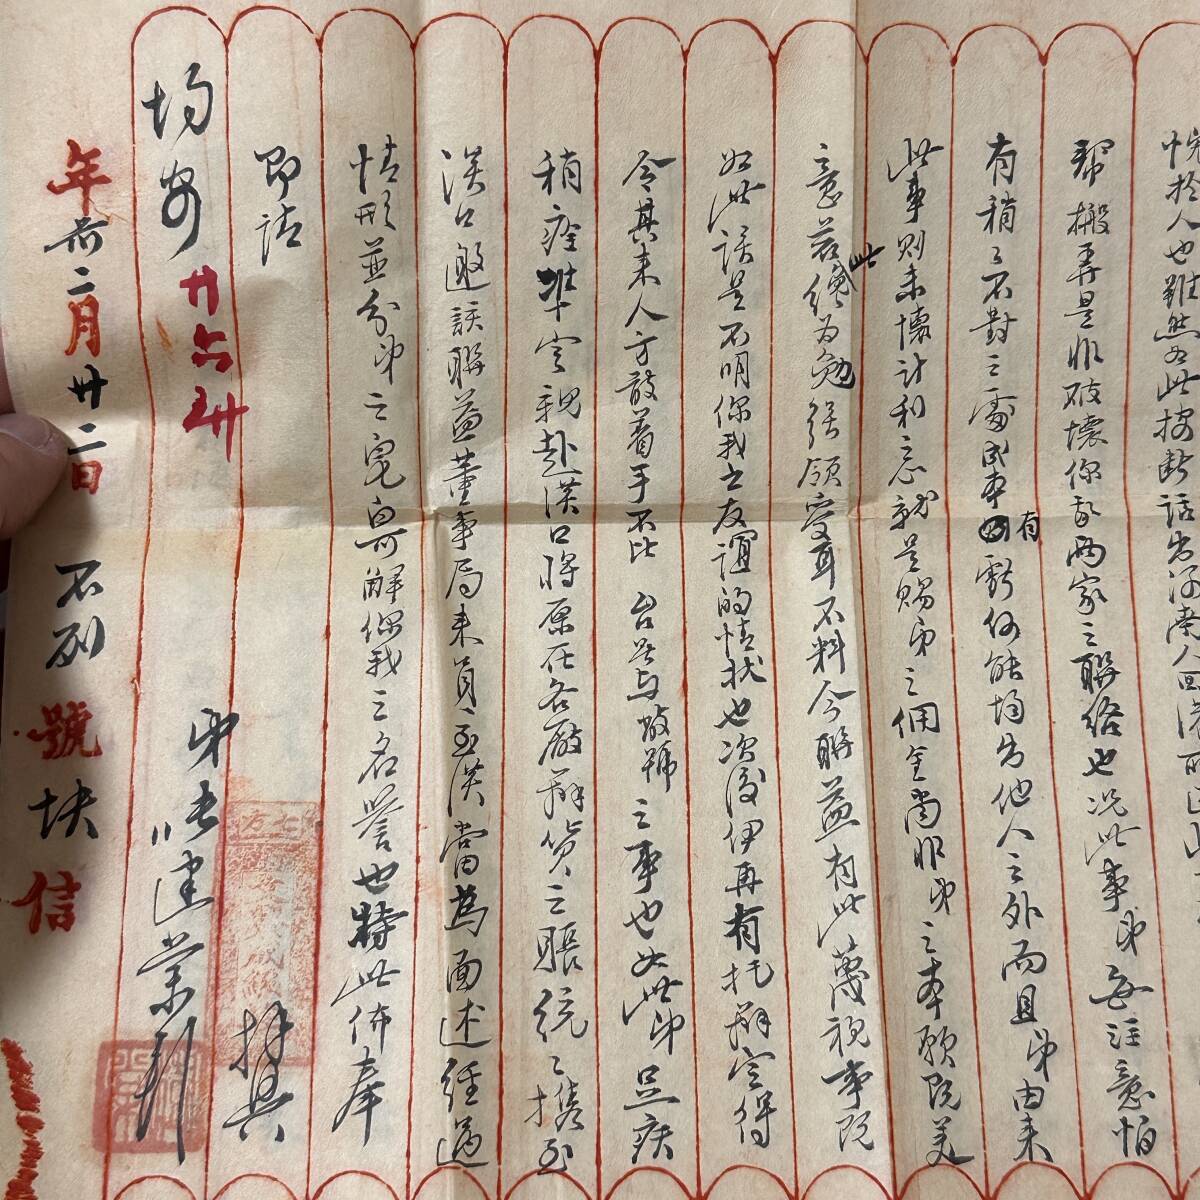 於人也雖然如此按斷話出河
幫搬弄是非破壞你敝兩家之聯絡也況此事弟每注意怕
有稍之不對之處或本有虧何能均告他人之外而且弟由來
此事則未懷計利之意就是賜弟之佣金尚非弟之本願既美
意若此纔為勉強領受耳不料今聯益有此蔑視事既
如此誤是不明你我之友誼的情狀也次後伊再有托辦定得
令其來人方敢着手不比 台號與敝號之事也如此弟足疾
稍痊準定親赴漢口將原在各廠辦貨之賬統之携至
漢口邀該聯益董事局來員至漢當為面述經過
情形並分弟之冤與解你我之名譽也特此佈奉
即請
均安 弟 建業
年 二月廿二日 不列號快信